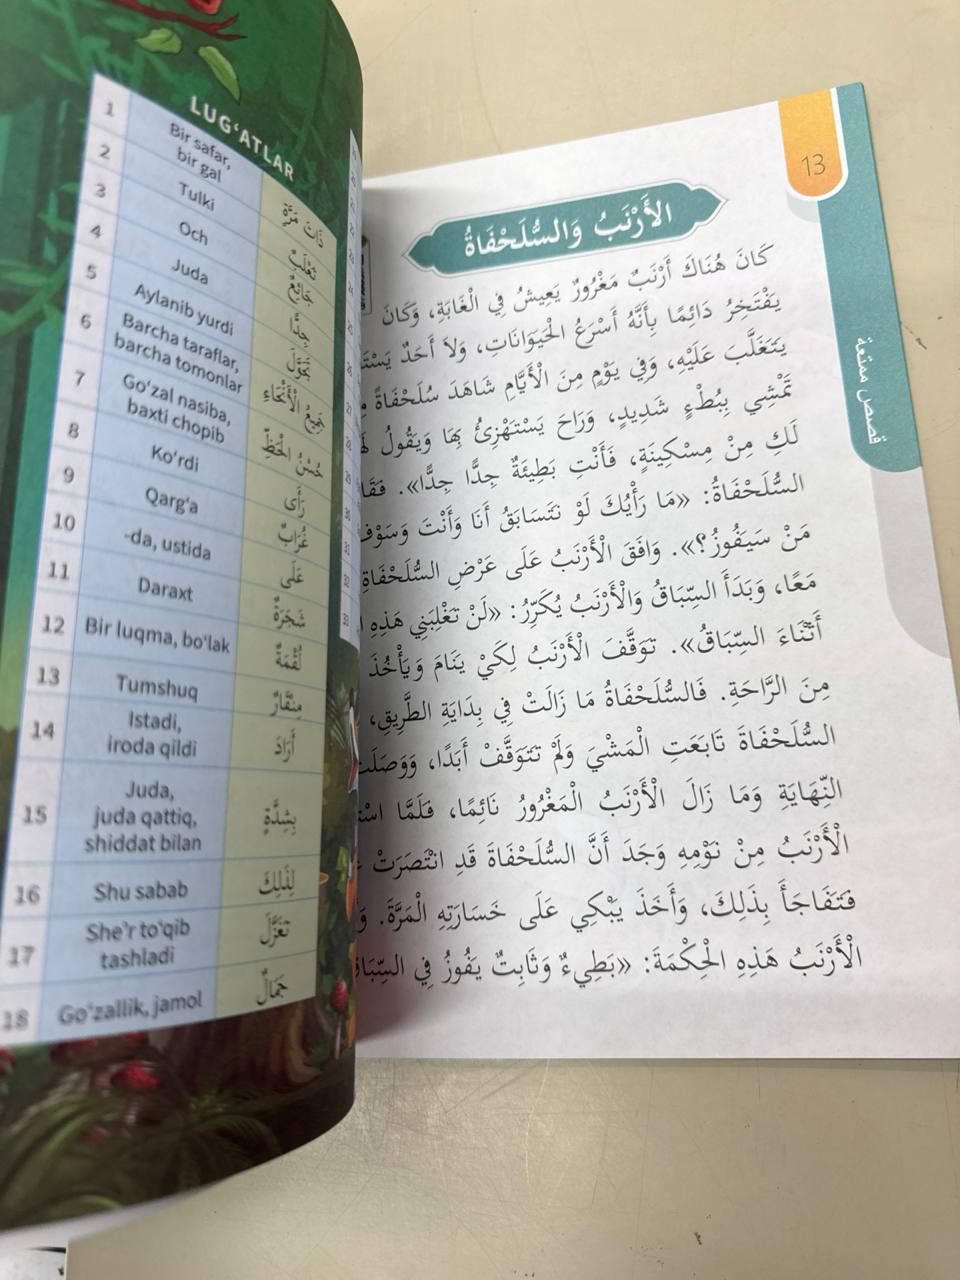 LUG‘ATLAR
1 Bir safar, bir gal ذَاتَ مَرَّةٍ
2 Tulki ثَعْلَبٌ
3 Och جَائِعٌ
4 Juda جِدًّا
5 Aylanib yurdi تَجَوَّلَ
6 Barcha taraflar, barcha tomonlar جَمِيعُ الْأَنْحَاءِ
7 Go‘zal nasiba, baxti chopib حُسْنُ الْحَظِّ
8 Ko‘rdi رَأَى
9 Qarg‘a غُرَابٌ
10 -da, ustida عَلَى
11 Daraxt شَجَرَةٌ
12 Bir luqma, bo‘lak لُقْمَةٌ
13 Tumshuq مِنْقَارٌ
14 Istadi, iroda qildi أَرَادَ
15 Juda, juda qattiq, shiddat bilan بِشِدَّةٍ
16 Shu sabab لِذَلِكَ
17 She’r to‘qib tashladi تَغَزَّلَ
18 Go‘zallik, jamol جَمَالٌ
13
قصص ممتعة
الأَرْنَبُ وَالسُّلَحْفَاةُ
كَانَ هُنَاكَ أَرْنَبٌ مَغْرُورٌ يَعِيشُ فِي الْغَابَةِ، وَكَانَ
يَفْتَخِرُ دَائِمًا بِأَنَّهُ أَسْرَعُ الْحَيَوَانَاتِ، وَلاَ أَحَدٌ
يَتَغَلَّبَ عَلَيْهِ، وَفِي يَوْمٍ مِنَ الْأَيَّامِ شَاهَدَ سُلَحْفَاةً
تَمْشِي بِبُطْءٍ شَدِيدٍ، وَرَاحَ يَسْتَهْزِئُ بِهَا وَيَقُولُ
لَكِ مِنْ مِسْكِينَةٍ، فَأَنْتِ بَطِيئَةٌ جِدًّا جِدًّا». فَقَا
السُّلَحْفَاةُ: «مَا رَأْيُكَ لَوْ نَتَسَابَقُ أَنَا وَأَنْتَ وَسَوْفَ
مَنْ سَيَفُوزُ؟». وَافَقَ الْأَرْنَبُ عَلَى عَرْضِ السُّلَحْفَاةِ
مَعًا، وَبَدَأَ السِّبَاقُ وَالْأَرْنَبُ يُكَرِّرُ: «لَنْ تَغْلِبَنِي هَذِهِ
أَثْنَاءَ السِّبَاقُ». تَوَقَّفَ الْأَرْنَبُ لِكَيْ يَنَامَ وَيَأْخُذَ
مِنَ الرَّاحَةِ. فَالسُّلَحْفَاةُ مَا زَالَتْ فِي بِدَايَةِ الطَّرِيقِ،
السُّلَحْفَاةَ تَابَعَتِ الْمَشْيَ وَلَمْ تَتَوَقَّفْ أَبَدًا، وَوَصَلَتْ
النِّهَايَةِ وَمَا زَالَ الْأَرْنَبُ الْمَغْرُورُ نَائِمًا، فَلَمَّا
الْأَرْنَبُ مِنْ نَوْمِهِ وَجَدَ أَنَّ السُّلَحْفَاةَ قَدِ انْتَصَرَتْ
فَتَفَاجَأَ بِذَلِكَ، وَأَخَذَ يَبْكِي عَلَى خَسَارَتِهِ الْمَرَّةَ.
الْأَرْنَبُ هَذِهِ الْحِكْمَةَ: «بَطِيءٌ وَثَابِتٌ يَفُوزُ فِي